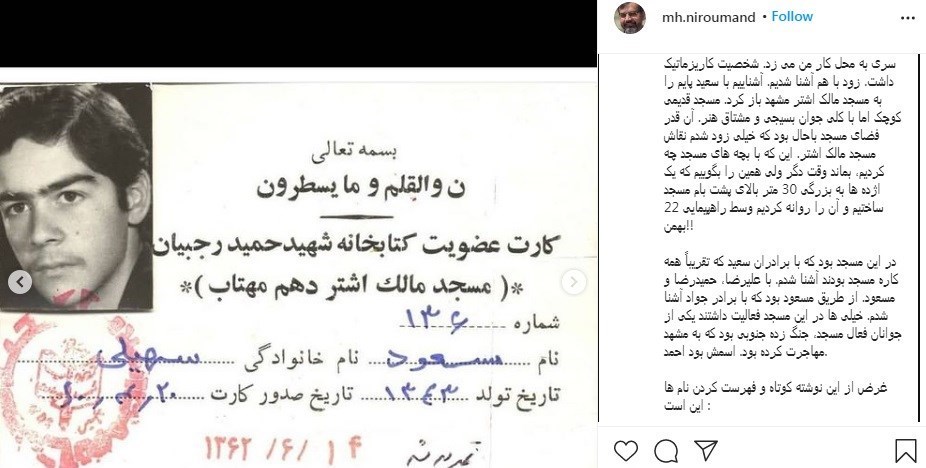 بسمه تعالی
ن والقلم و ما یسطرون
کارت عضویت کتابخانه شهید حمید رجبیان
*( مسجد مالك اشتر دهم مهتاب )*
شماره ۱۳۶
نام مسعود نام خانوادگی سهیلی
تاریخ تولد ۱۳۴۳ تاریخ صدور کارت
۱۳۶۲/۶/۱۴
mh.niroumand • Follow
سری به محل کار من می زد. شخصیت کاریزماتیک
داشت. زود با هم آشنا شدیم. آشناییم با سعید پایم را
به مسجد مالک اشتر مشهد باز کرد. مسجد قدیمی
کوچک اما با کلی جوان بسیجی و مشتاق هنر. آن قدر
فضای مسجد باحال بود که خیلی زود شدم نقاش
مسجد مالک اشتر. این که با بچه های مسجد چه
کردیم، بماند وقت دگر ولی همین را بگوییم که یک
اژده ها به بزرگی 30 متر بالای پشت بام مسجد
ساختیم و آن را روانه کردیم وسط راهپیمایی 22
بهمن!!
در این مسجد بود که با برادران سعید که تقریباً همه
کاره مسجد بودند آشنا شدم. با علیرضا، حمیدرضا و
مسعود. از طریق مسعود بود که با برادر جواد آشنا
شدم. خیلی ها در این مسجد فعالیت داشتند یکی از
جوانان فعال مسجد، جنگ زده جنوبی بود که به مشهد
مهاجرت کرده بود. اسمش بود احمد.
غرض از این نوشته کوتاه و فهرست کردن نام ها
این است :